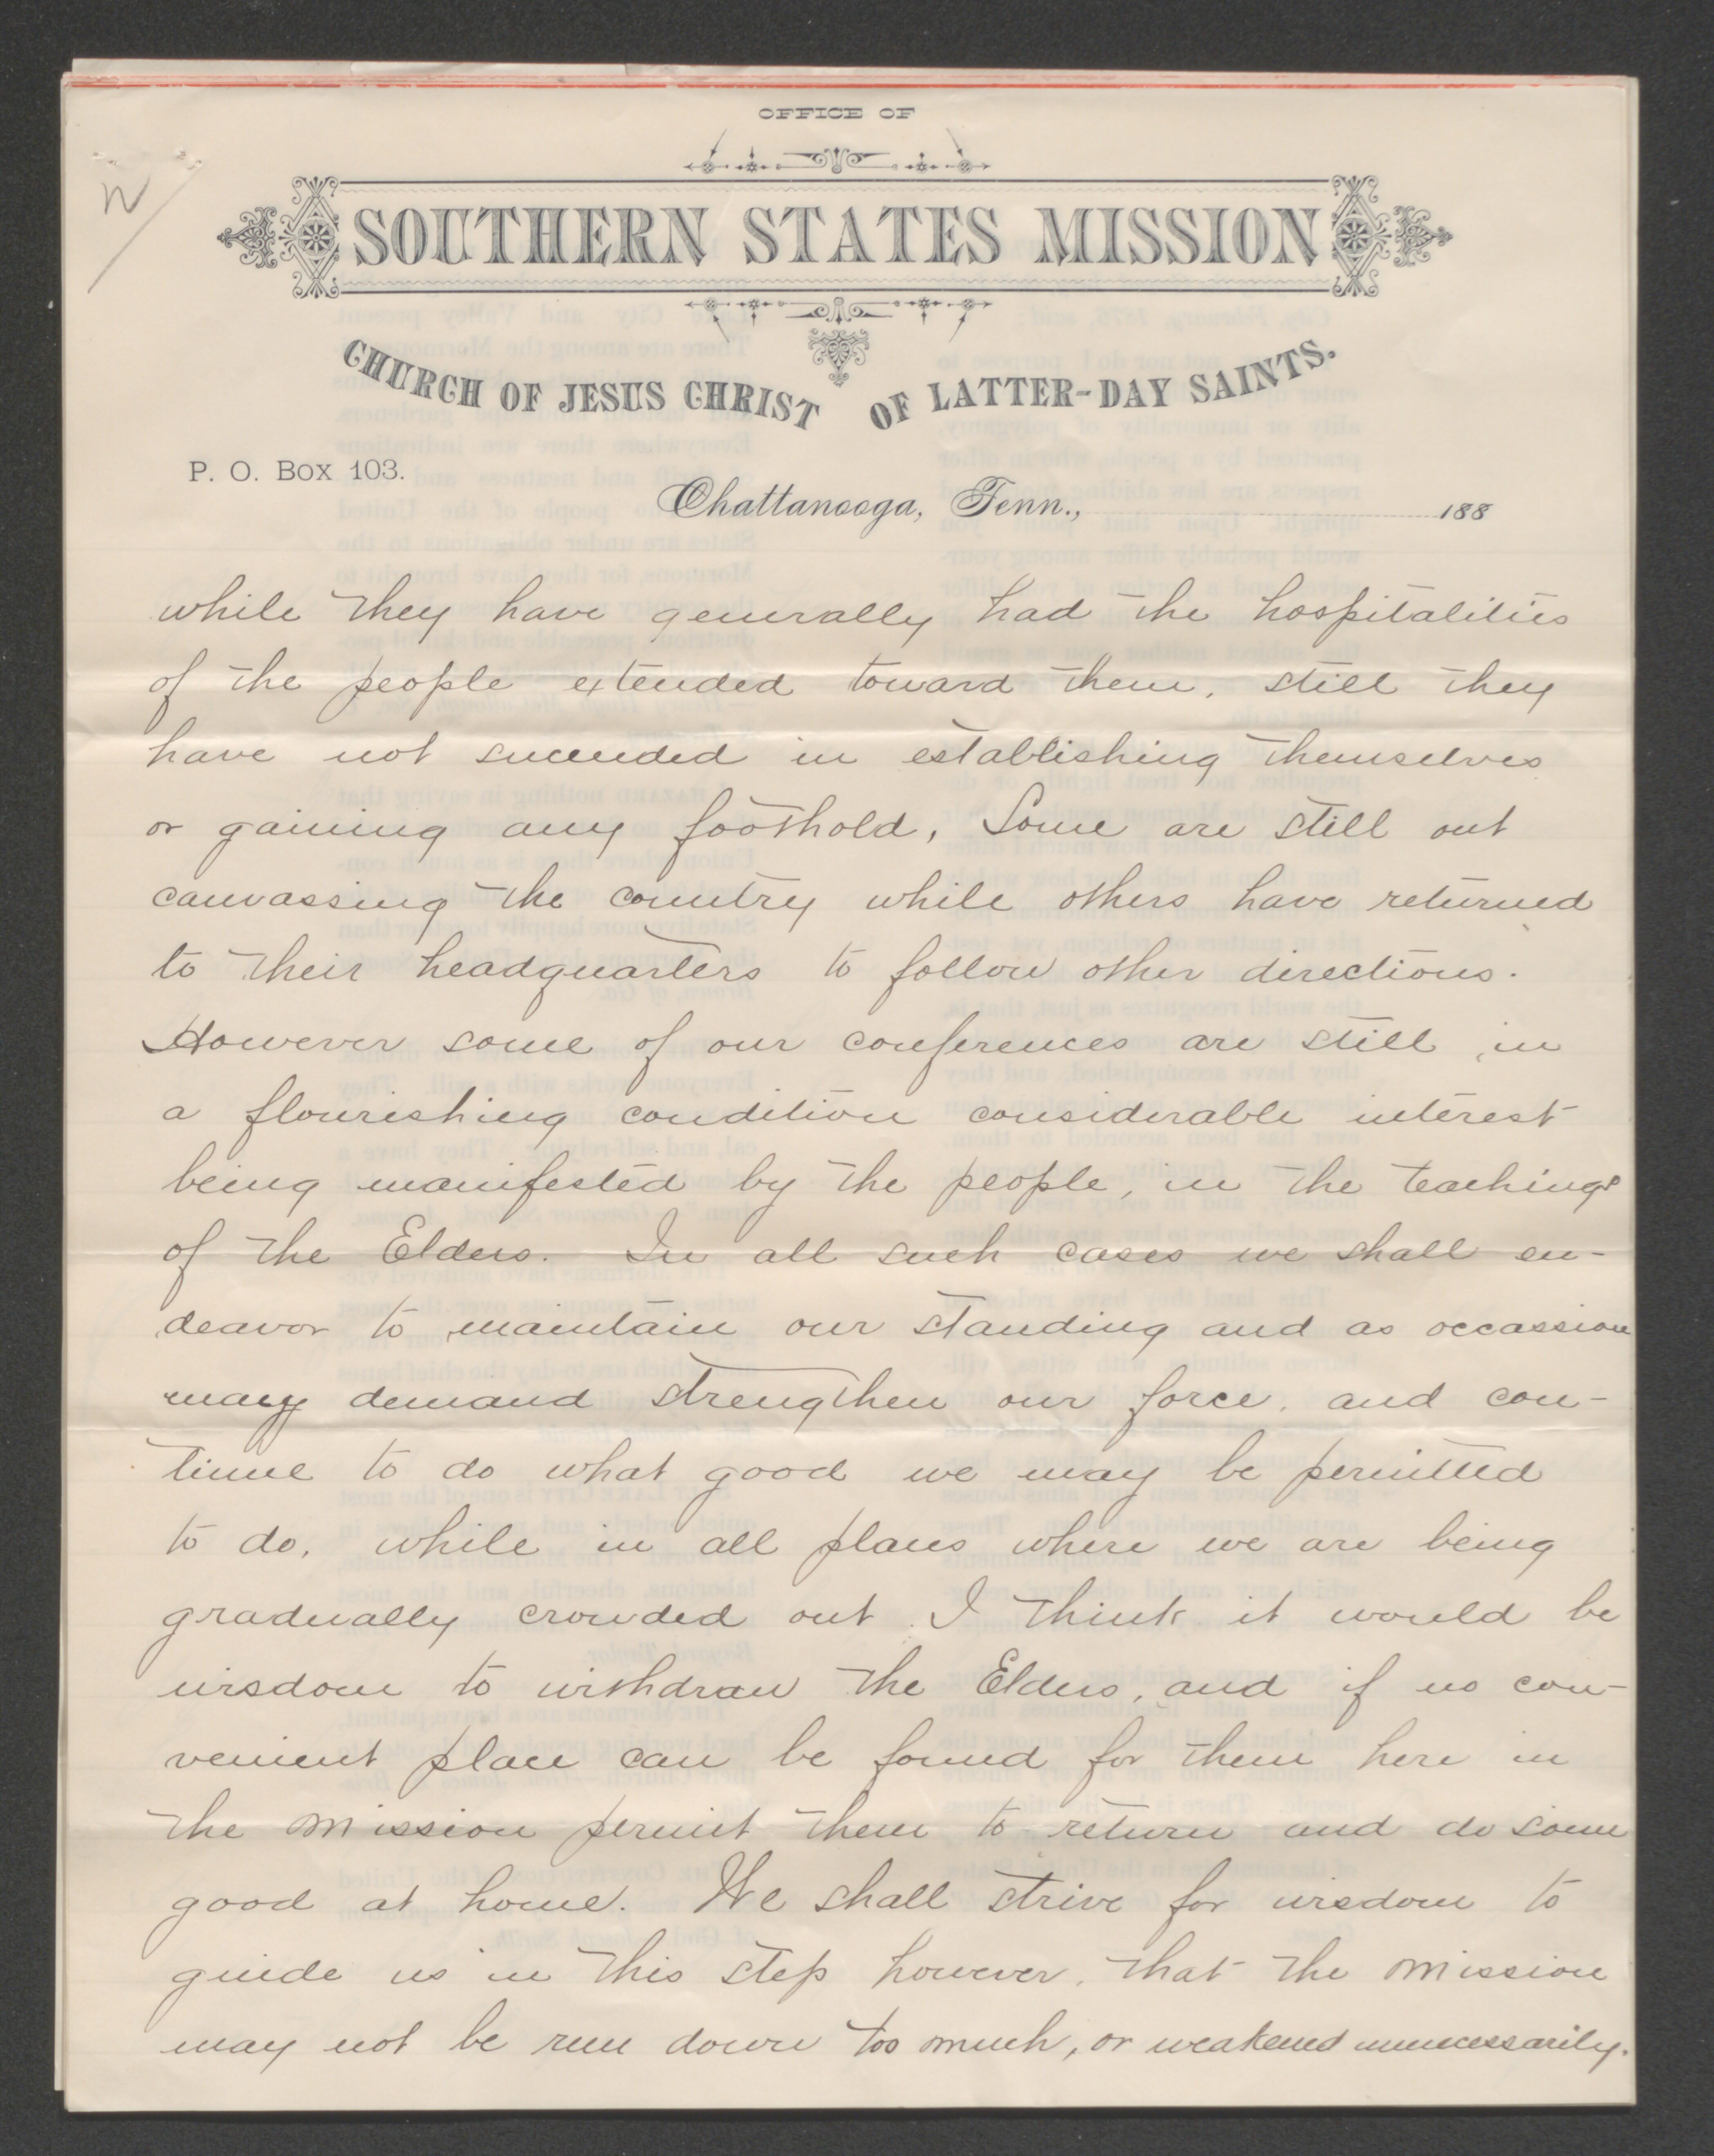 OFFICE OF
SOUTHERN STATES MISSION
CHURCH OF JESUS CHRIST OF LATTER-DAY SAINTS.
P. O. Box 103.
Chattanooga, Tenn., 188
while they have generally had the hospitalities
of the people extended toward them, still they
have not succeeded in establishing themselves
or gaining any foothold, Some are still out
canvassing the country while others have returned
to their headquarters to follow other directions.
However some of our conferences are still in
a flourishing condition considerable interest
being manifested by the people, in the teachings
of the Elders. In all such cases we shall en-
deavor to maintain our standing and as occassion
may demand strengthen our force, and con-
tinue to do what good we may be permitted
to do, while in all places where we are being
gradually crowded out I think it would be
wisdom to withdraw the Elders, and if no con-
venient place can be found for them here in
the Mission permit them to return and do some
good at home. We shall strive for wisdom to
guide us in this step however, that the Mission
may not be run down too much, or weakened unnecessarily.